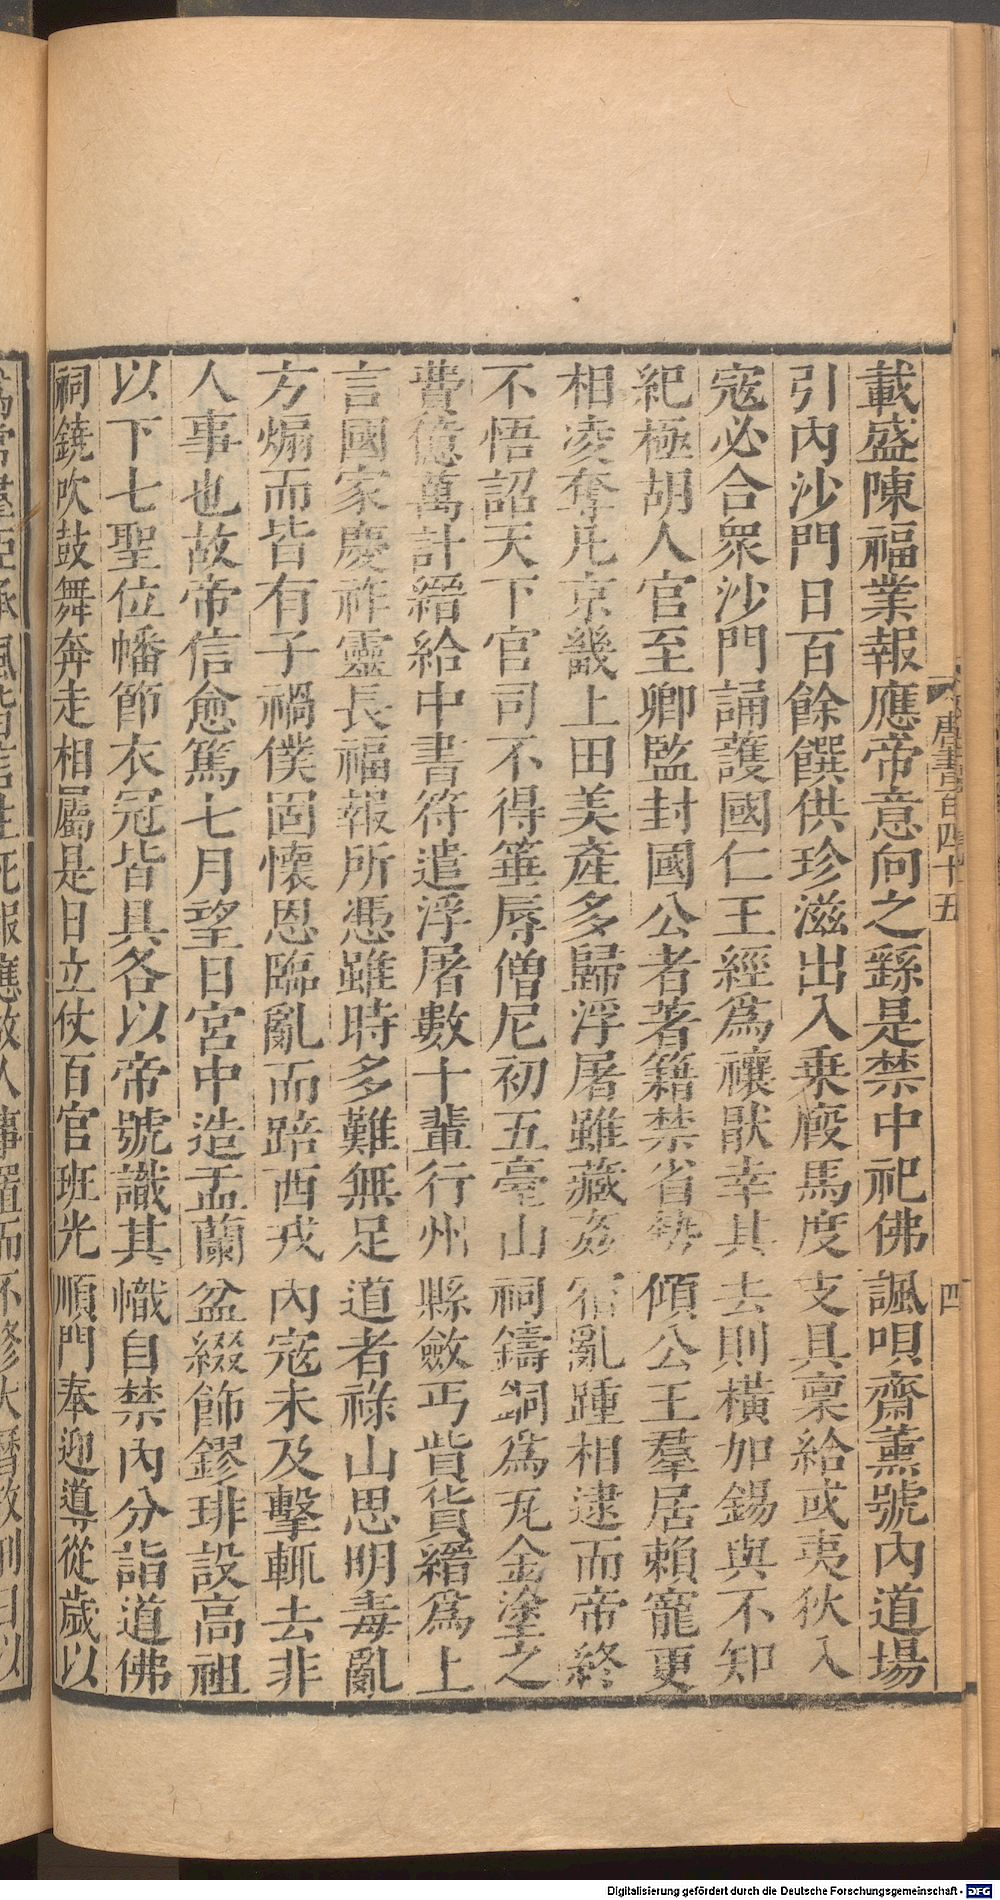 載盛陳福業報應帝意向之繇是禁中祀佛諷唄齋薰號內道場
引內沙門日百餘饌供珍滋出入乗廄馬度支具稟給或夷狄入
寇必合衆沙門誦護國仁王經爲禳猒幸其去則橫加錫與不知
紀極胡人官至卿監封國公者著籍禁省勢傾公王羣居賴寵更
相凌奪凡京畿上田美產多歸浮屠雖藏姦宿亂踵相逮而帝終
不悟詔天下官司不得箠辱僧尼初五臺山祠鑄銅爲瓦金塗之
費億萬計縉給中書符遣浮屠數十輩行州縣斂丐貲貨縉爲上
言國家慶祚靈長福報所憑雖時多難無足道者祿山思明毒亂
方煽而皆有子禍僕固懷恩臨亂而踣西戎內寇未及擊輒去非
人事也故帝信愈篤七月望日宮中造盂蘭盆綴飾鏐琲設高祖
以下七聖位幡節衣冠皆具各以帝號識其幟自禁內分詣道佛
祠鐃吹鼓舞奔走相屬是日立仗百官班光順門奉迎導從歲以
唐書百四十五
四
Digitalisierung gefördert durch die Deutsche Forschungsgemeinschaft - DFG